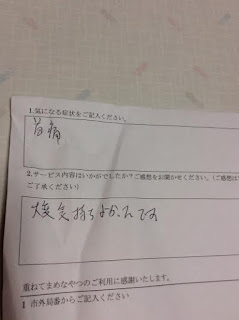 1.気になる症状をご記入ください。
首痛
2.サービス内容はいかがでしたか?ご感想をお聞かせください。(ご感想は
ご了承ください)
大変気持ちよかったです
重ねてまめなやつのご利用に感謝いたします。
1 市外局番からご記入ください